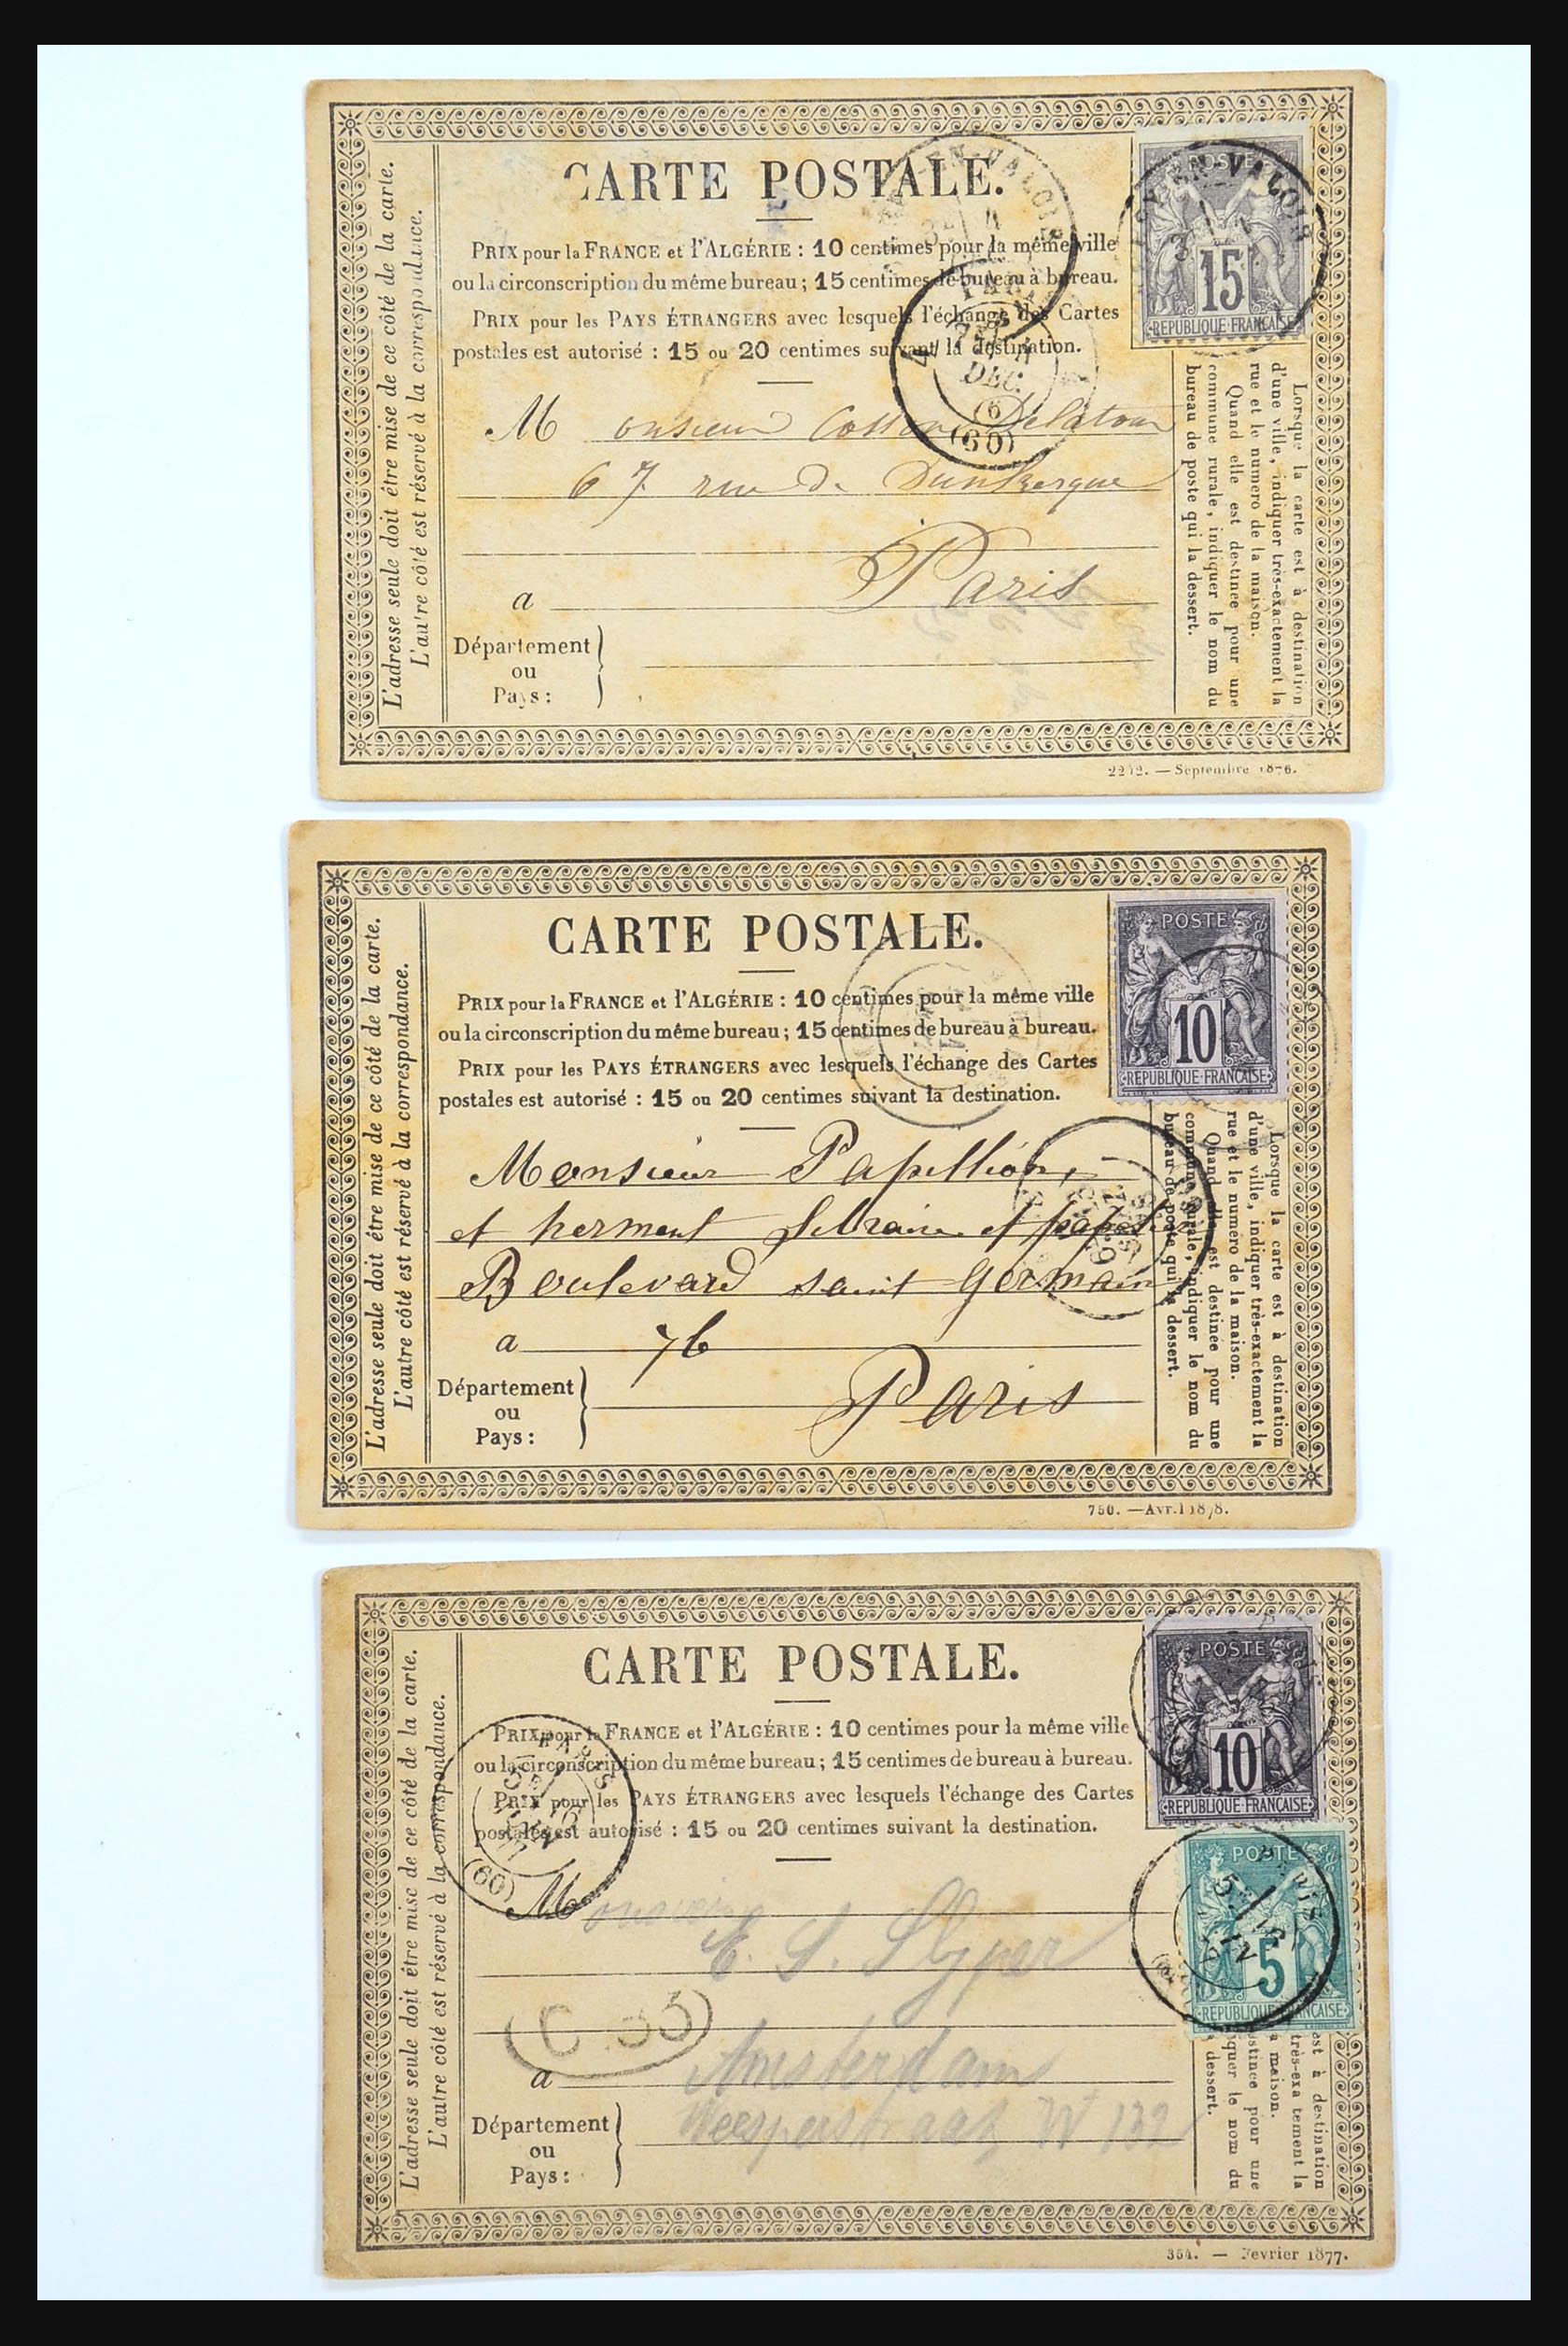 CARTE POSTALE.
PRIX pour la FRANCE et l'ALGÉRIE : 10 centimes pour la même ville
ou la circonscription du même bureau ; 15 centimes de bureau à bureau.
PRIX pour les PAYS ÉTRANGERS avec lesquels l'échange des Cartes
postales est autorisé : 15 ou 20 centimes suivant la destination.
Monsieur
67 rue de Dunkerque
a Paris
Département
ou
Pays :
L'adresse seule doit être mise de ce côté de la carte.
L'autre côté est réservé à la correspondance.
POSTE
15
REPUBLIQUE FRANCAISE
EN-VALOIS
DEC.
(60)
Lorsque la carte est à destination
d'une ville, indiquer très-exactement la
rue et le numéro de la maison.
Quand elle est destinée pour une
commune rurale, indiquer le nom du
bureau de poste qui la dessert.
2212. — Septembre 1876.
CARTE POSTALE.
PRIX pour la FRANCE et l'ALGÉRIE : 10 centimes pour la même ville
ou la circonscription du même bureau ; 15 centimes de bureau à bureau.
PRIX pour les PAYS ÉTRANGERS avec lesquels l'échange des Cartes
postales est autorisé : 15 ou 20 centimes suivant la destination.
Monsieur Papillion,
et herment libraire et
Boulevard saint Germain
a 76
Département
ou
Pays :
Paris
L'adresse seule doit être mise de ce côté de la carte.
L'autre côté est réservé à la correspondance.
POSTE
10
REPUBLIQUE FRANCAISE
Lorsque la carte est à destination
d'une ville, indiquer très-exactement la
rue et le numéro de la maison.
Quand elle est destinée pour une
commune rurale, indiquer le nom du
bureau de poste qui la dessert.
750. — Avril 1878.
CARTE POSTALE.
PRIX pour la FRANCE et l'ALGÉRIE : 10 centimes pour la même ville
ou la circonscription du même bureau ; 15 centimes de bureau à bureau.
PRIX pour les PAYS ÉTRANGERS avec lesquels l'échange des Cartes
postales est autorisé : 15 ou 20 centimes suivant la destination.
Monsieur
E. S. Slyper
C 33
a Amsterdam
Weesperstraat W 132
Département
ou
Pays :
L'adresse seule doit être mise de ce côté de la carte.
L'autre côté est réservé à la correspondance.
PARIS
(60)
POSTE
10
REPUBLIQUE FRANCAISE
POSTE
5
REPUBLIQUE FRANCAISE
PARIS
est à destination
très-exactement la
maison.
destinée pour une
indiquer le nom du
dessert.
354. — Fevrier 1877.